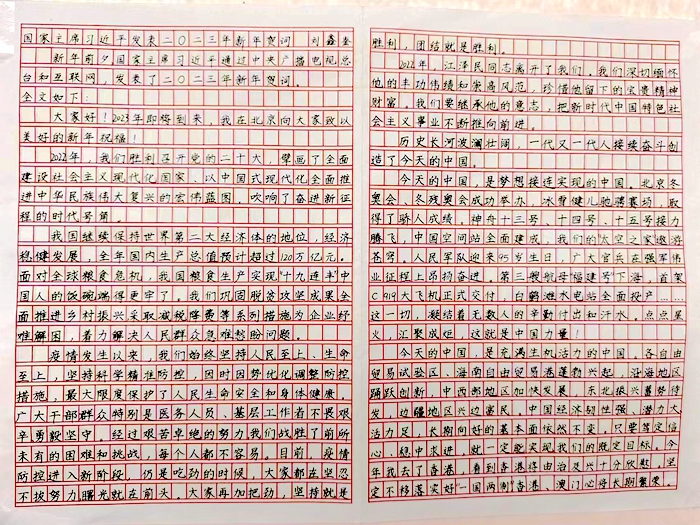 国家主席习近平发表二〇二三年新年贺词 刘鑫奎
新年前夕国家主席习近平通过中央广播电视总
台和互联网，发表了二〇二三年新年贺词。
全文如下：
大家好！2023年即将到来，我在北京向大家致以
美好的新年祝福！
2022年，我们胜利召开党的二十大，擘画了全面
建设社会主义现代化国家、以中国式现代化全面推
进中华民族伟大复兴的宏伟蓝图，吹响了奋进新征
程的时代号角。
我国继续保持世界第二大经济体的地位，经济
稳健发展，全年国内生产总值预计超过120万亿元。
面对全球粮食危机，我国粮食生产实现"十九连丰"中
国人的饭碗端得更牢了。我们巩固脱贫攻坚成果全
面推进乡村振兴采取减税降费等系列措施为企业纾
难解困，着力解决人民群众急难愁盼问题。
疫情发生以来，我们始终坚持人民至上、生命
至上，坚持科学精准防控，因时因势优化调整防控
措施，最大限度保护了人民生命安全和身体健康。
广大干部群众特别是医务人员、基层工作者不畏艰
辛勇毅坚守。经过艰苦卓绝的努力我们战胜了前所
未有的困难和挑战，每个人都不容易。目前，疫情
防控进入新阶段，仍是吃劲的时候，大家都在坚忍
不拔努力曙光就在前头。大家再加把劲，坚持就是
胜利，团结就是胜利。
2022年，江泽民同志离开了我们。我们深切缅怀
他的丰功伟绩和崇高风范，珍惜他留下的宝贵精神
财富。我们要继承他的遗志，把新时代中国特色社
会主义事业不断推向前进。
历史长河波澜壮阔，一代又一代人接续奋斗创
造了今天的中国。
今天的中国，是梦想接连实现的中国。北京冬
奥会、冬残奥会成功举办，冰雪健儿驰骋赛场，取
得了骄人成绩。神舟十三号、十四号、十五号接力
腾飞，中国空间站全面建成，我们的"太空之家"遨游
苍穹。人民军队迎来95岁生日，广大官兵在强军伟
业征程上昂扬奋进。第三艘航母"福建号"下海，首架
C919大飞机正式交付，白鹤滩水电站全面投产……
这一切，凝结着无数人的辛勤付出和汗水。点点星
火，汇聚成炬，这就中国力量！
今天的中国，是充满生机活力的中国。各自由
贸易试验区、海南自由贸易港蓬勃兴起，沿海地区
踊跃创新，中西部地区加快发展，东北振兴蓄势待
发，边疆地区兴边富民。中国经济韧性强、潜力大
活力足，长期向好的基本面依然不变。只要笃定信
心、稳中求进，就一定能实现我们的既定目标。今
年我去了香港，看到香港将由治及兴十分欣慰。坚
定不移落实好"一国两制"香港、澳门必将长期繁荣。